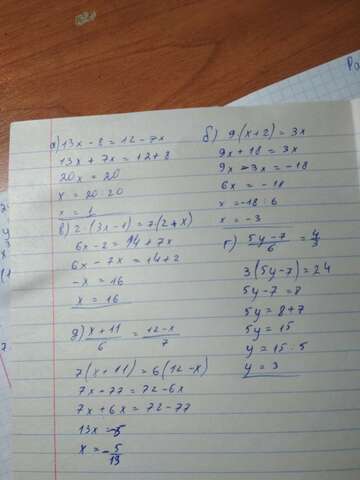 а) 13x - 8 = 12 - 7x
13x + 7x = 12 + 8
20x = 20
x = 20:20
x = 1
б) 9(x+2) = 3x
9x + 18 = 3x
9x - 3x = -18
6x = -18
x = -18 : 6
x = -3
в) 2·(3x-1) = 7(2+x)
6x - 2 = 14 + 7x
6x - 7x = 14 + 2
-x = 16
x = 16
г) 5y-7/6 = 4/3
3(5y-7) = 24
5y - 7 = 8
5y = 8+7
5y = 15
y = 15 : 5
y = 3
д) x+11/6 = 12-x/7
7(x+11) = 6(12-x)
7x + 77 = 72 - 6x
7x + 6x = 72 - 77
13x = -5
x = -5/13